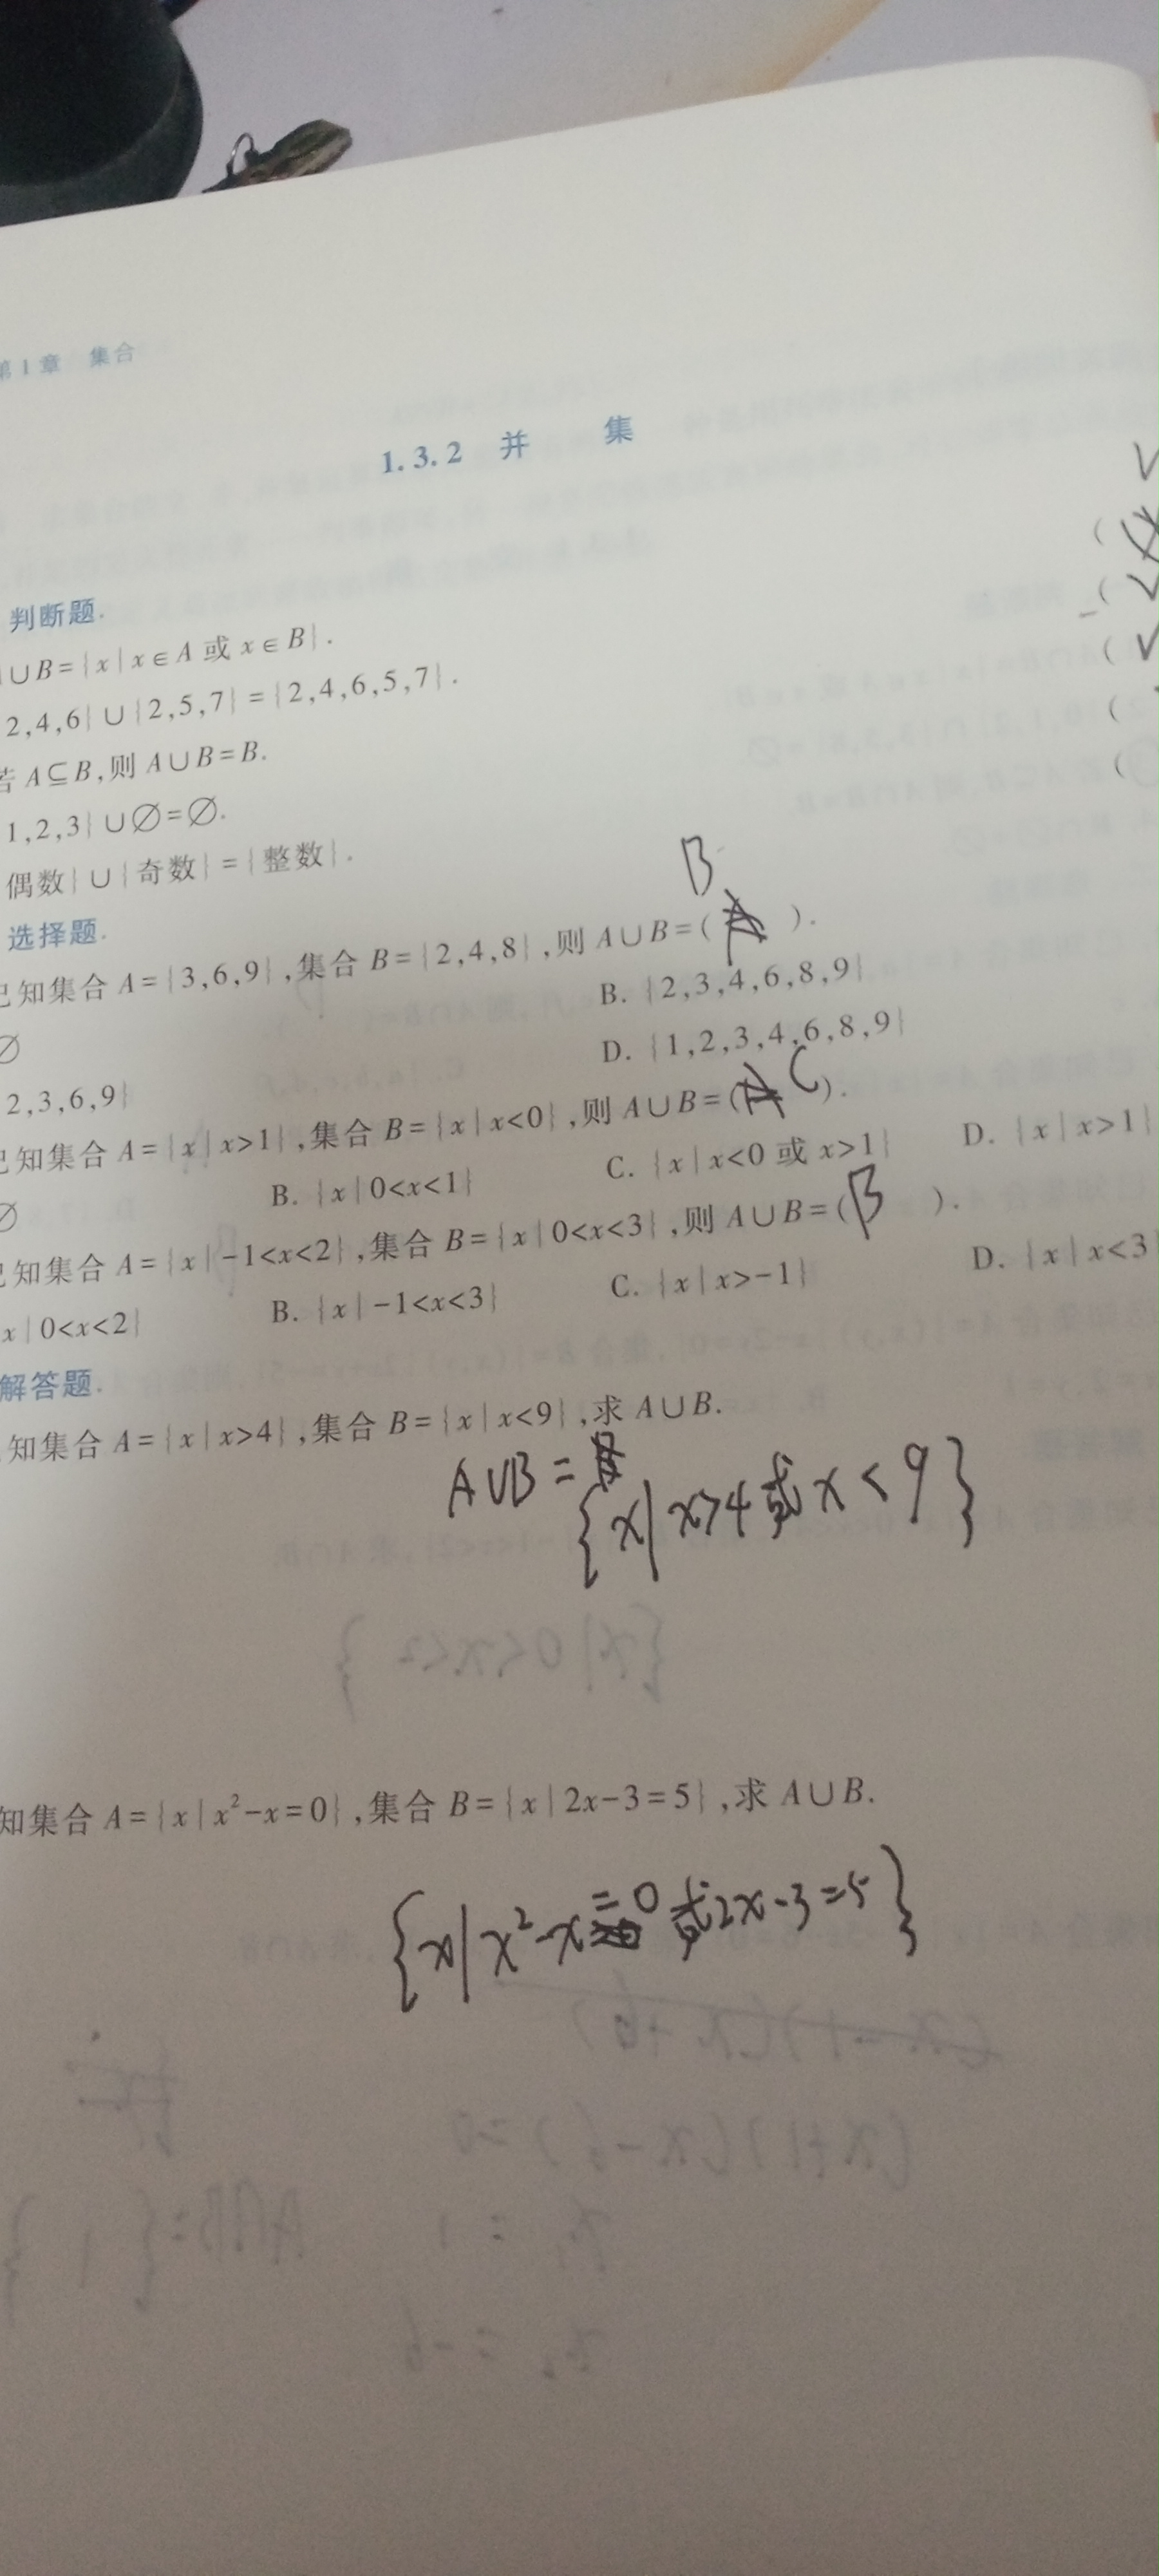 第1章 集合
1.3.2 并 集
判断题.
∪B={x|x∈A或x∈B}.
2,4,6}∪{2,5,7}={2,4,6,5,7}.
若A⊆B,则A∪B=B.
1,2,3}∪∅=∅.
偶数}∪{奇数}={整数}.
选择题.
B
已知集合A={3,6,9},集合B={2,4,8},则A∪B=( ).
∅
B. {2,3,4,6,8,9}
2,3,6,9}
D. {1,2,3,4,6,8,9}
已知集合A={x|x>1},集合B={x|x<0},则A∪B=( C ).
∅ B. {x|0<x<1} C. {x|x<0或x>1} D. {x|x>1}
已知集合A={x|-1<x<2},集合B={x|0<x<3},则A∪B=( B ).
x|0<x<2} B. {x|-1<x<3} C. {x|x>-1} D. {x|x<3}
解答题.
知集合A={x|x>4},集合B={x|x<9},求A∪B.
A∪B=
{x|x>4或x<9}
知集合A={x|x²-x=0},集合B={x|2x-3=5},求A∪B.
{x|x²-x=0或2x-3=5}